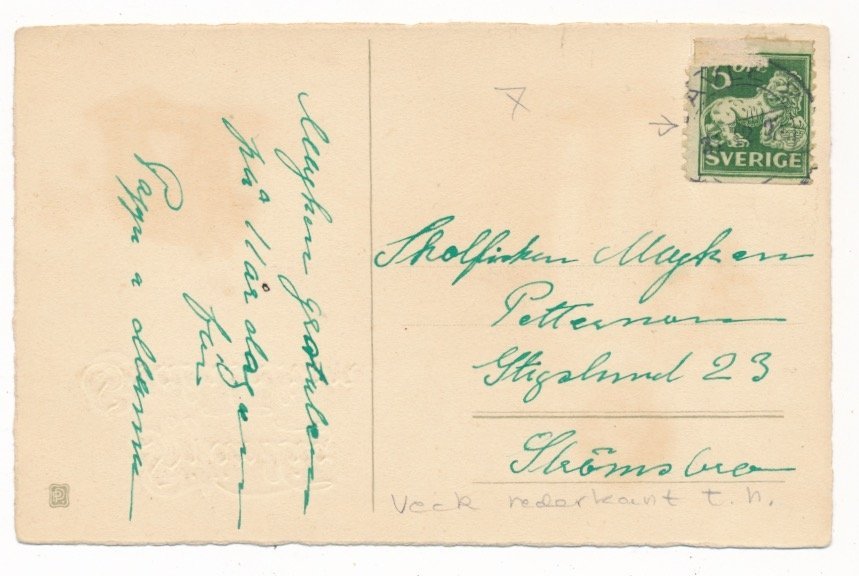 Majken gratuleras
på 11 år dagen
från
Pappa o Mamma
5 öre
SVERIGE
7
Skolfröken Majken
Petterson
Stigslund 23
Strömsbro
Veck nederkant t.h.